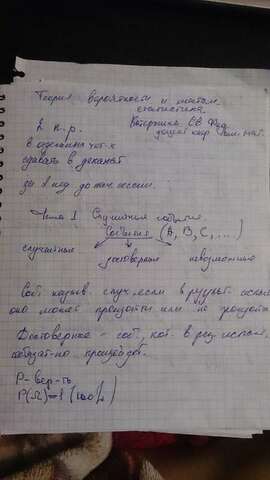 Теория вероятности и матем.
статистика.
Катержина СВ
доцент каф
2 к.р.
в отдельных тет-х
сдавать в деканат
за 1 нед до нач сессии.
Тема 1 Случайные события.
События (A, B, C, ...)
случайные достоверные невозможные
соб. назыв. случ, если в результ. испыт
оно может произойти или не произойти
Достоверное – соб, кот. в рез испыт.
обязат-но произойдёт.
P – вер-ть
P(Ω)=1 (100%)